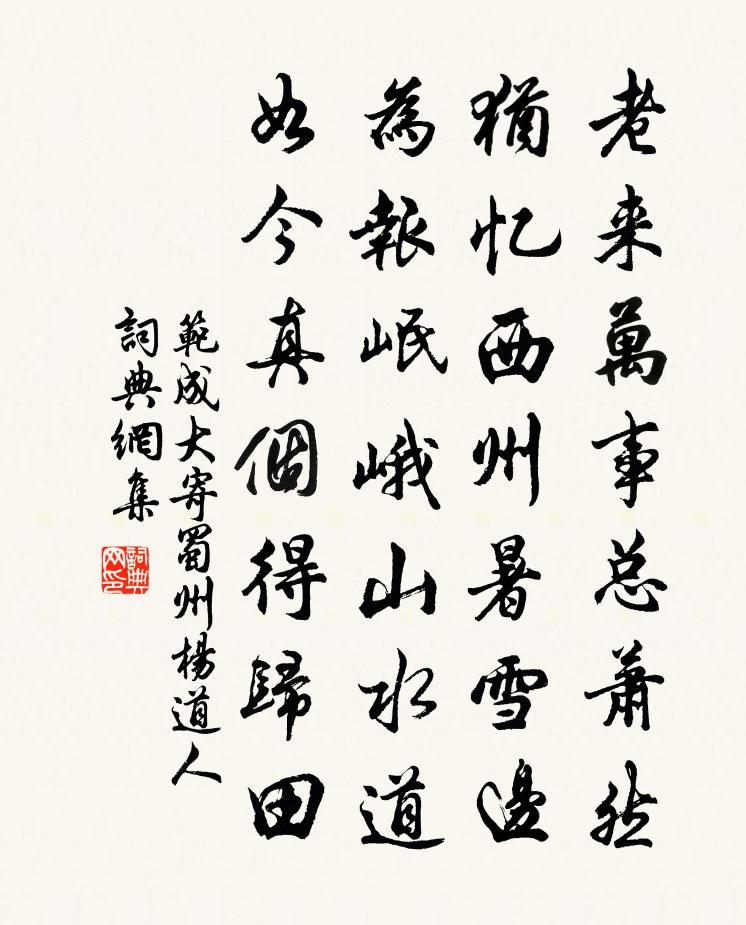 老来萬事总蕭然
猶忆西州暑雪邊
為報岷峨山水道
如今真個得歸田
範成大寄蜀州楊道人
詞典網集
詞典
网印